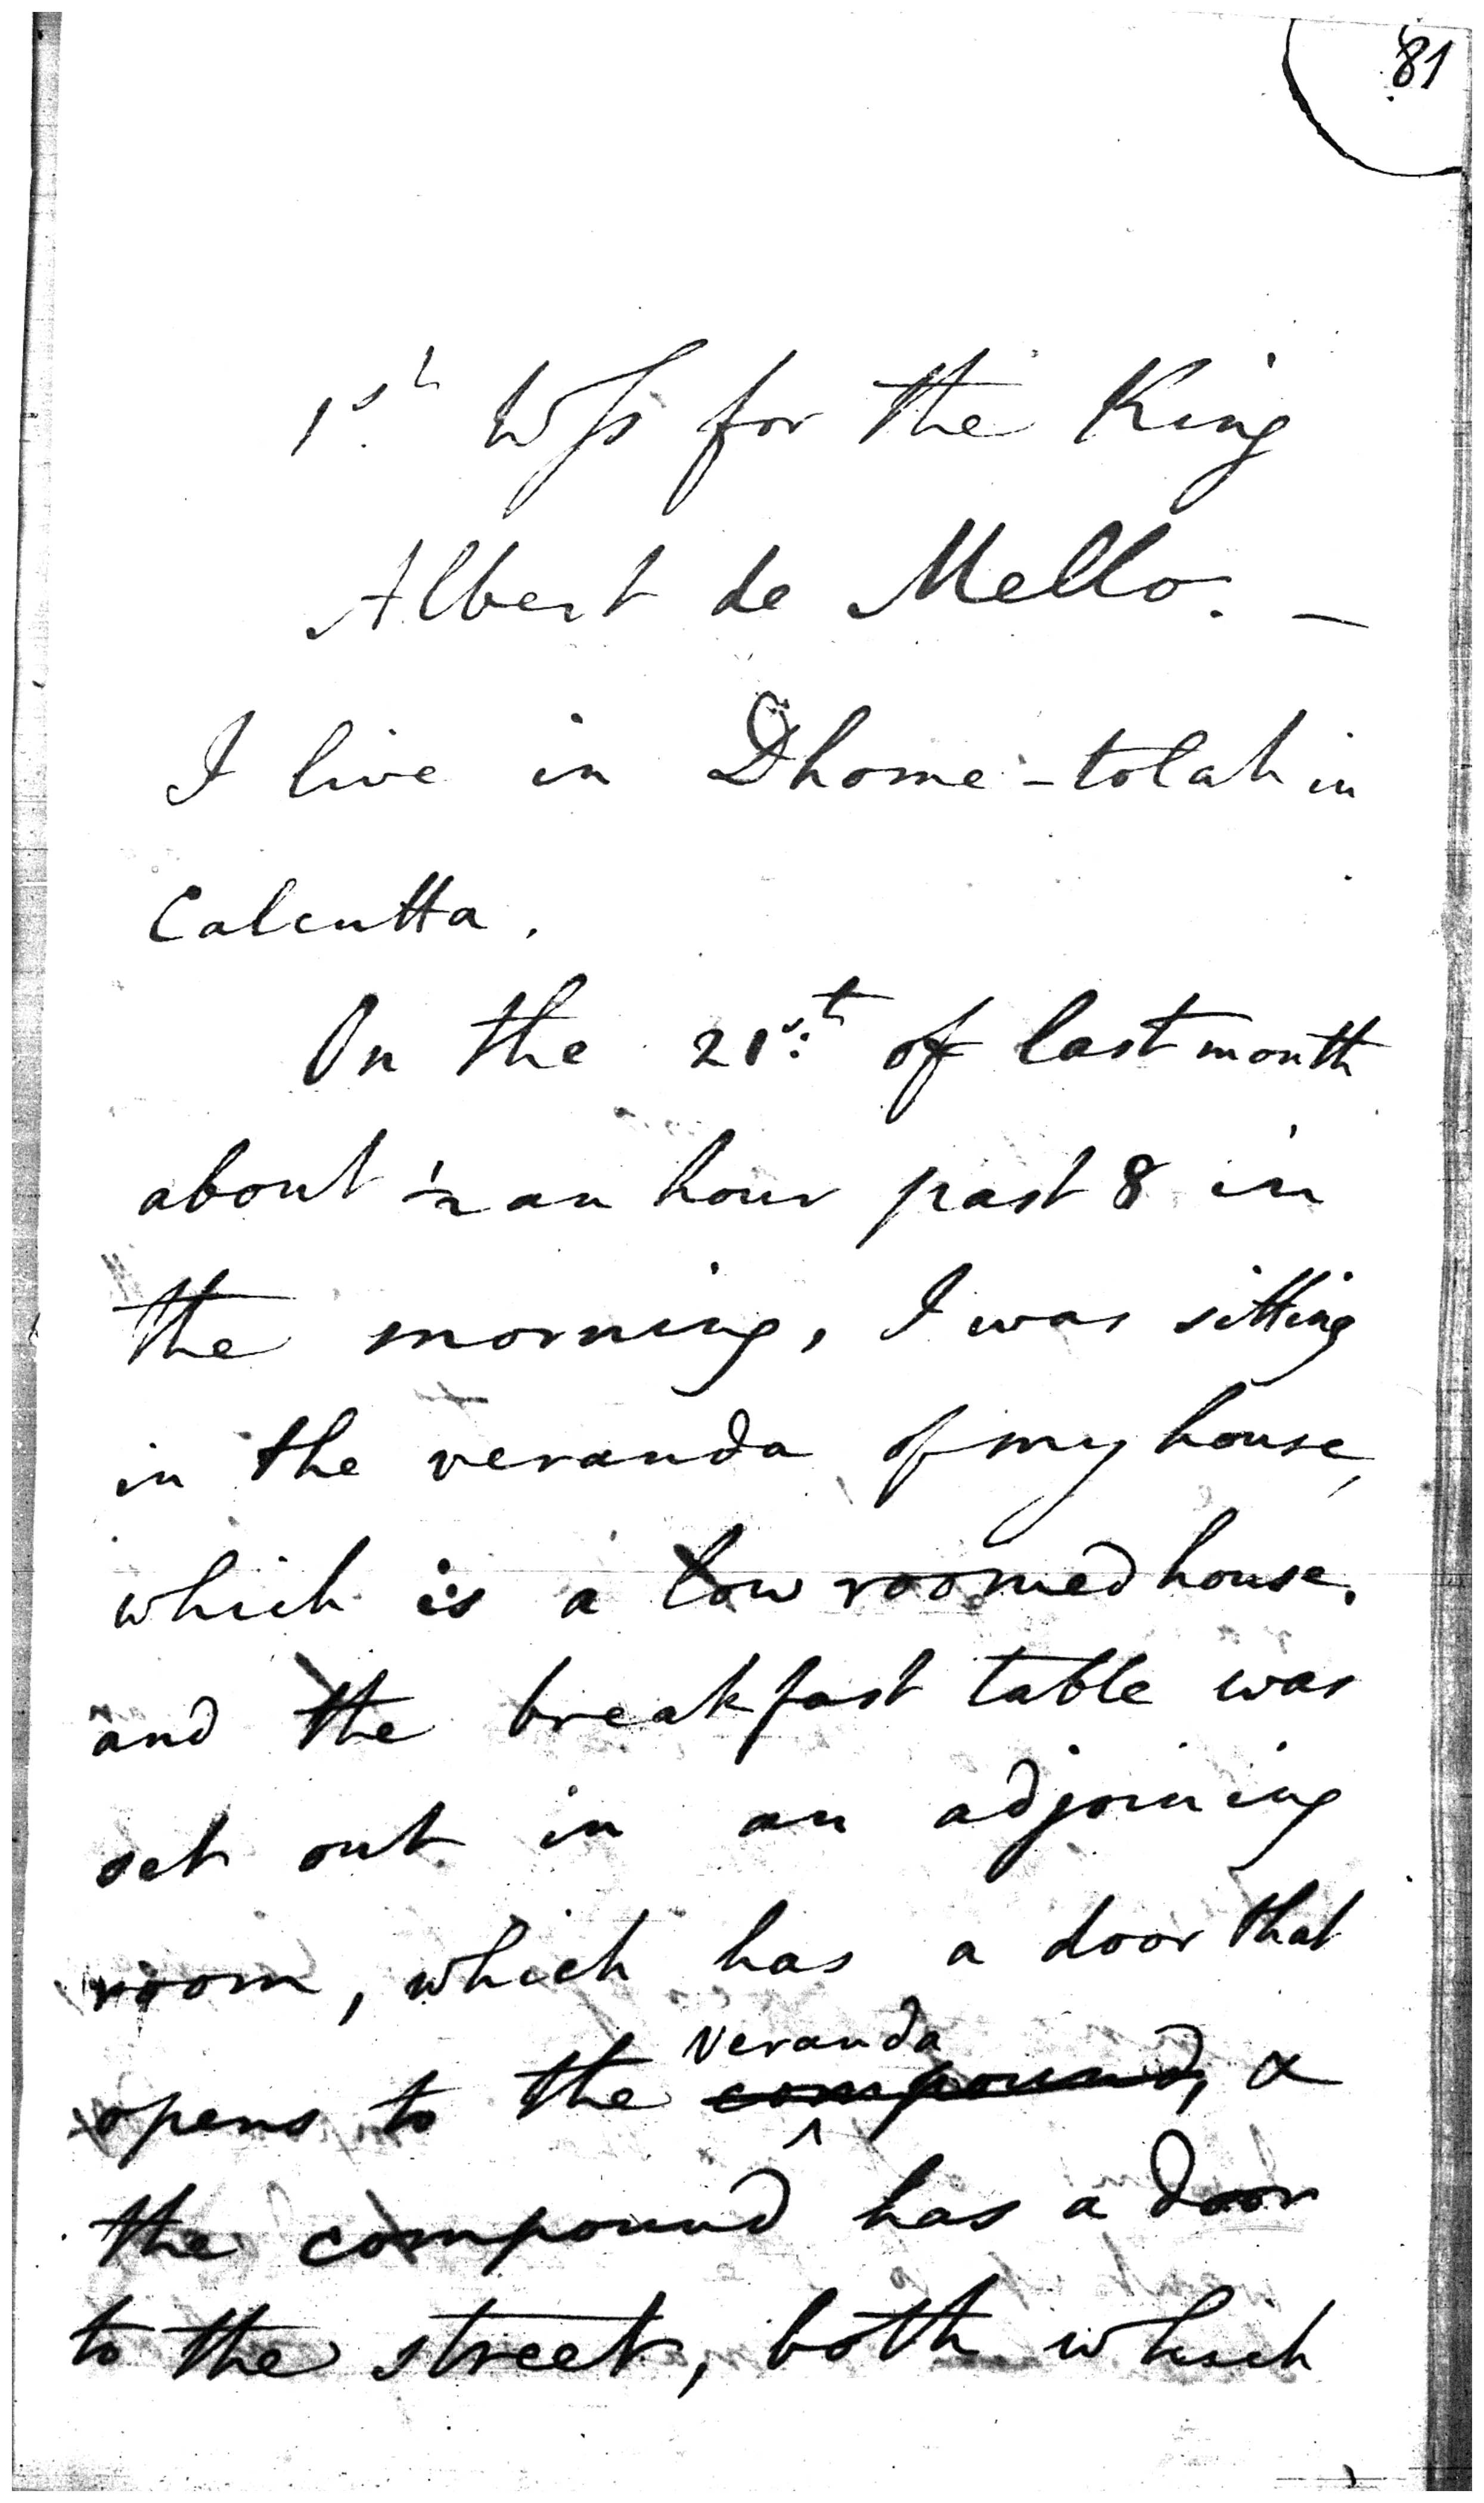 81
1st Wss for the King
Albert de Mello. —
I live in Dhome-tolah in
Calcutta.
On the 21st of last month
about ½ an hour past 8 in
the morning, I was sitting
in the veranda of my house,
which is a low roomed house,
and the breakfast table was
set out in an adjoining
room, which has a door that
veranda
opens to the compound, &
the compound has a door
to the street, both which